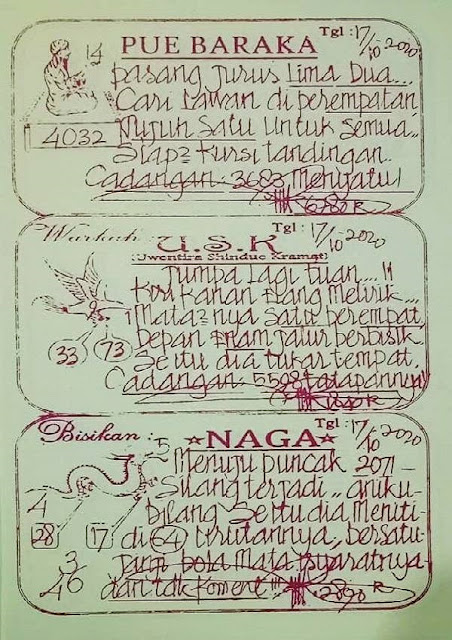 PUE BARAKA
Tgl : 17/10-2020
14
4032
pasang jurus Lima Dua...
Cari Lawan di perempatan
Nujuh Satu Untuk Semua..
Siap2 Kursi tandingan.
Cadangan: 3683 Menyatu!
6780 R
Warkah :
U.S.K
Tgl : 17/10-2020
(Uwentira Shindue Kramat)
33
73
Jumpa Lagi tuan....!!
Kiri Kanan Elang Melirik...
Mata2nya Satu perempat,
Depan Enam jalur berbisik
Seitu dia tukar tempat.
Cadangan: 5598 tatapannya
Bisikan :
NAGA
Tgl : 17/10-2020
5
4
28
17
3
46
Menuju puncak 2071
Silang terjadi..
bilang Seitu dia Meniti
di 64 Urutannya, bersatu
bola Mata Isyaratnya
dan tdk Koment !!!
2890 R